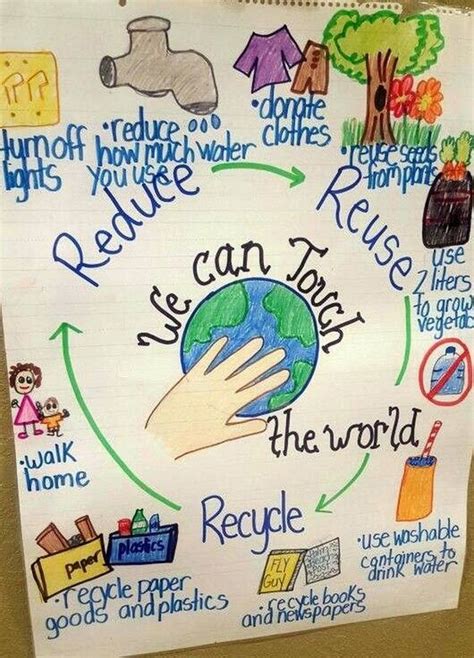 turn off
lights
• reduce
how much water
you use
• donate
clothes
• reuse seeds
from plants
Reduce
Reuse
use
2 liters
to grow
vegetab
We can Touch
the world
• walk
home
Recycle
• use washable
containers to
drink water
paper
plastics
• recycle paper
goods and plastics
FLY
GUY
• recycle books
and newspapers